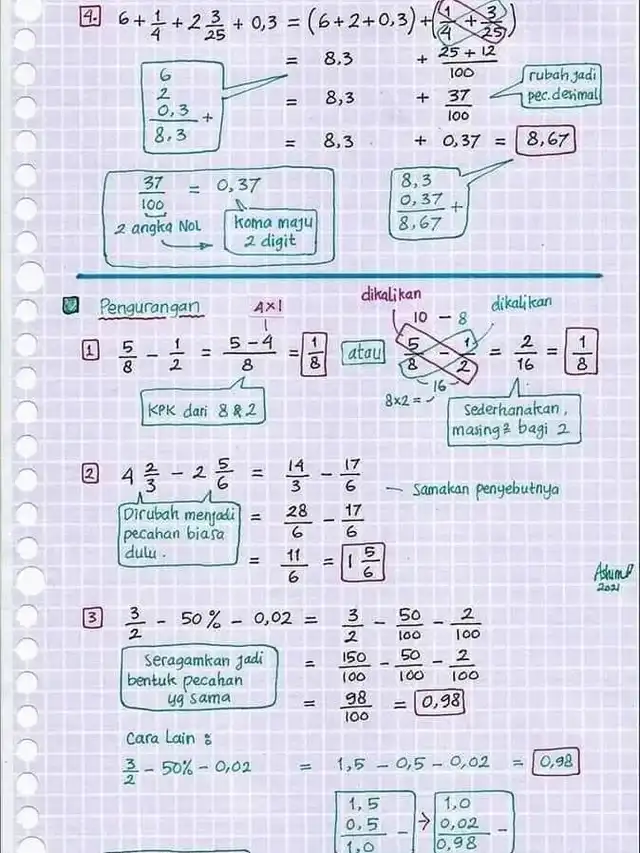 4. 6 + 1/4 + 2 3/25 + 0,3 = (6+2+0,3) + (1/4 + 3/25)
= 8,3 + 25 + 12/100
6
2
0,3 +
8,3
= 8,3 + 37/100
rubah jadi
pec. desimal
= 8,3 + 0,37 = 8,67
37/100 = 0,37
2 angka Nol
koma maju
2 digit
8,3
0,37 +
8,67
Pengurangan
4x1
dikalikan
dikalikan
10 - 8
1 5/8 - 1/2 = 5-4/8 = 1/8 atau 5/8 - 1/2 = 2/16 = 1/8
16
8x2 =
KPK dari 8 & 2
Sederhanakan,
masing² bagi 2
2 4 2/3 - 2 5/6 = 14/3 - 17/6
Samakan penyebutnya
Dirubah menjadi
pecahan biasa
dulu.
= 28/6 - 17/6
= 11/6 = 1 5/6
2021
3 3/2 - 50% - 0,02 = 3/2 - 50/100 - 2/100
Seragamkan jadi
bentuk pecahan
yg sama
= 150/100 - 50/100 - 2/100
= 98/100 = 0,98
Cara Lain :
3/2 - 50% - 0,02 = 1,5 - 0,5 - 0,02 = 0,98
1,5
0,5 -
1,0
→
1,0
0,02 -
0,98